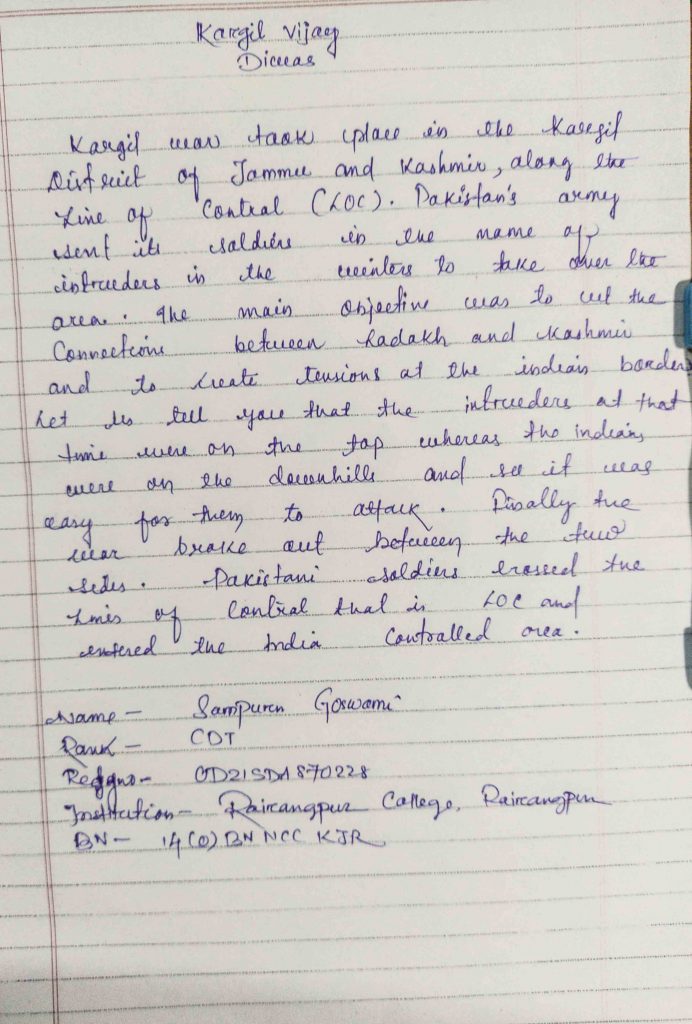 Kargil Vijay
Diwas
Kargil war took place in the Kargil
District of Jammu and Kashmir, along the
Line of Control (LOC). Pakistan's army
sent its soldiers in the name of
intruders in the winters to take over the
area. The main objective was to cut the
Connections between Ladakh and Kashmir
and to create tensions at the indian border
Let us tell you that the intruders at that
time were on the top whereas the indians
were on the downhills and so it was
easy for them to attack. Finally the
war broke out between the two
sides. Pakistani soldiers crossed the
Lines of Control that is LOC and
entered the India Controlled area.
Name - Sampurn Goswami
Rank - CDT
Regno - OD21SDA870228
Institution - Rairangpur College, Rairangpur
BN - 14(O) BN NCC KJR